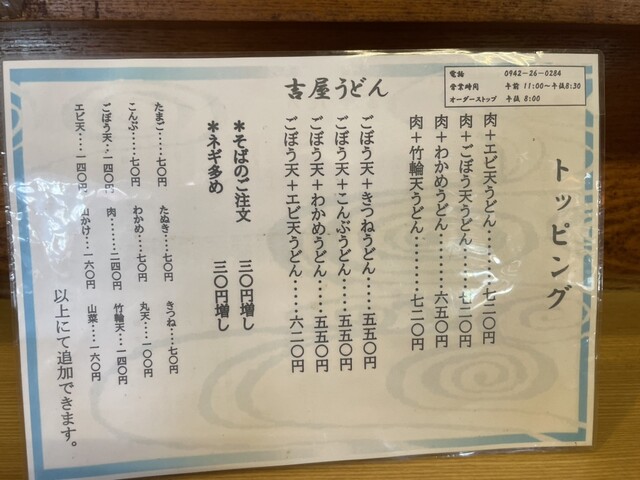 吉屋うどん
電話 0942-26-0284
営業時間 午前 11:00〜午後8:30
オーダーストップ 午後 8:00
トッピング
肉+エビ天うどん‥‥‥七二〇円
肉+ごぼう天うどん‥‥‥七二〇円
肉+わかめうどん‥‥‥六五〇円
肉+竹輪天うどん‥‥‥七二〇円
ごぼう天+きつねうどん‥‥‥五五〇円
ごぼう天+こんぶうどん‥‥‥五五〇円
ごぼう天+わかめうどん‥‥‥五五〇円
ごぼう天+エビ天うどん‥‥‥六二〇円
*そばのご注文 三〇円増し
*ネギ多め 三〇円増し
たまご‥‥‥七〇円
こんぶ‥‥‥七〇円
ごぼう天‥一四〇円
エビ天‥‥一四〇円
たぬき‥‥七〇円
わかめ‥‥七〇円
肉‥‥‥二四〇円
山かけ‥‥一六〇円
きつね‥‥七〇円
丸天‥‥一〇〇円
竹輪天‥‥一四〇円
山菜‥‥一六〇円
以上にて追加できます。